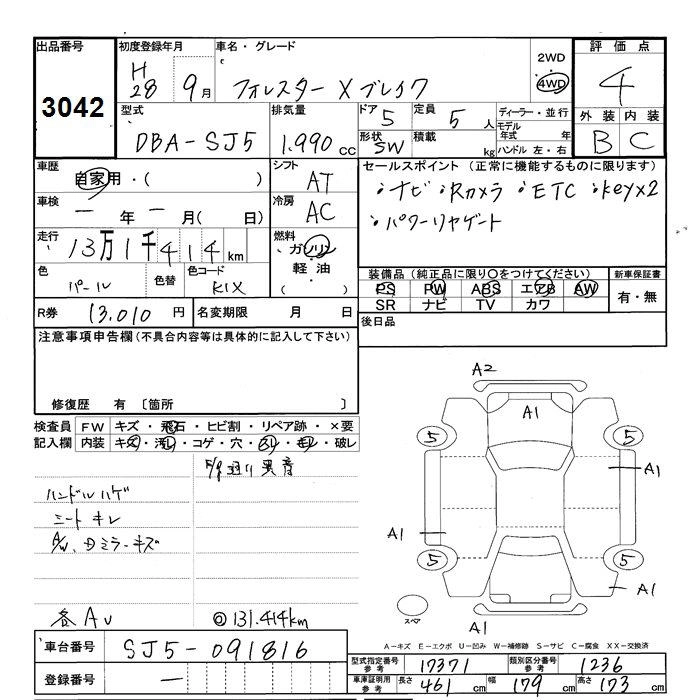 出品番号
3042
初度登録年月
H
28 9月
車名・グレード
フォレスター Xブレイク
2WD
4WD
評価点
4
外装 内装
B C
型式
DBA-SJ5
排気量
1.990 cc
ドア 5
形状 SW
定員 5 人
積載 kg
ディーラー・並行
モデル年式 年
ハンドル 左・右
車歴
自家用・( )
車検
一 年 一 月( 日)
走行
13万1千414km
色
パール
色替
色コード
K1X
シフト
AT
冷房
AC
燃料
ガソリン
軽油
( )
セールスポイント (正常に機能するものに限ります)
・ナビ ・Rカメラ ・ETC ・keyx2
・パワーリヤゲート
装備品 (純正品に限り○をつけてください)
PS PW ABS エアB AW
SR ナビ TV カワ
新車保証書
有・無
R券 13.010 円
名変期限 月 日
後日品
注意事項申告欄(不具合内容等は具体的に記入して下さい)
修復歴 有 〔箇所 〕
検査員 FW キズ・飛石・ヒビ割・リペア跡・×要
記入欄 内装 キズ・汚れ・コゲ・穴・スリ・モレ・破レ
ハンドルハゲ
シートキレ
A/W、Dミラーキズ
各AU
◎131.414km
車台番号 SJ5-091816
登録番号 一
A2
A1
5
5
A1
A1
5
5
A1
A1
スペア
A-キズ E-エクボ U-凹み W-補修跡 S-サビ C-腐食 XX-交換済
型式指定番号 参考 17371
類別区分番号 参考 1236
車庫証明用 参考 長さ 461 cm 幅 179 cm 高さ 173 cm